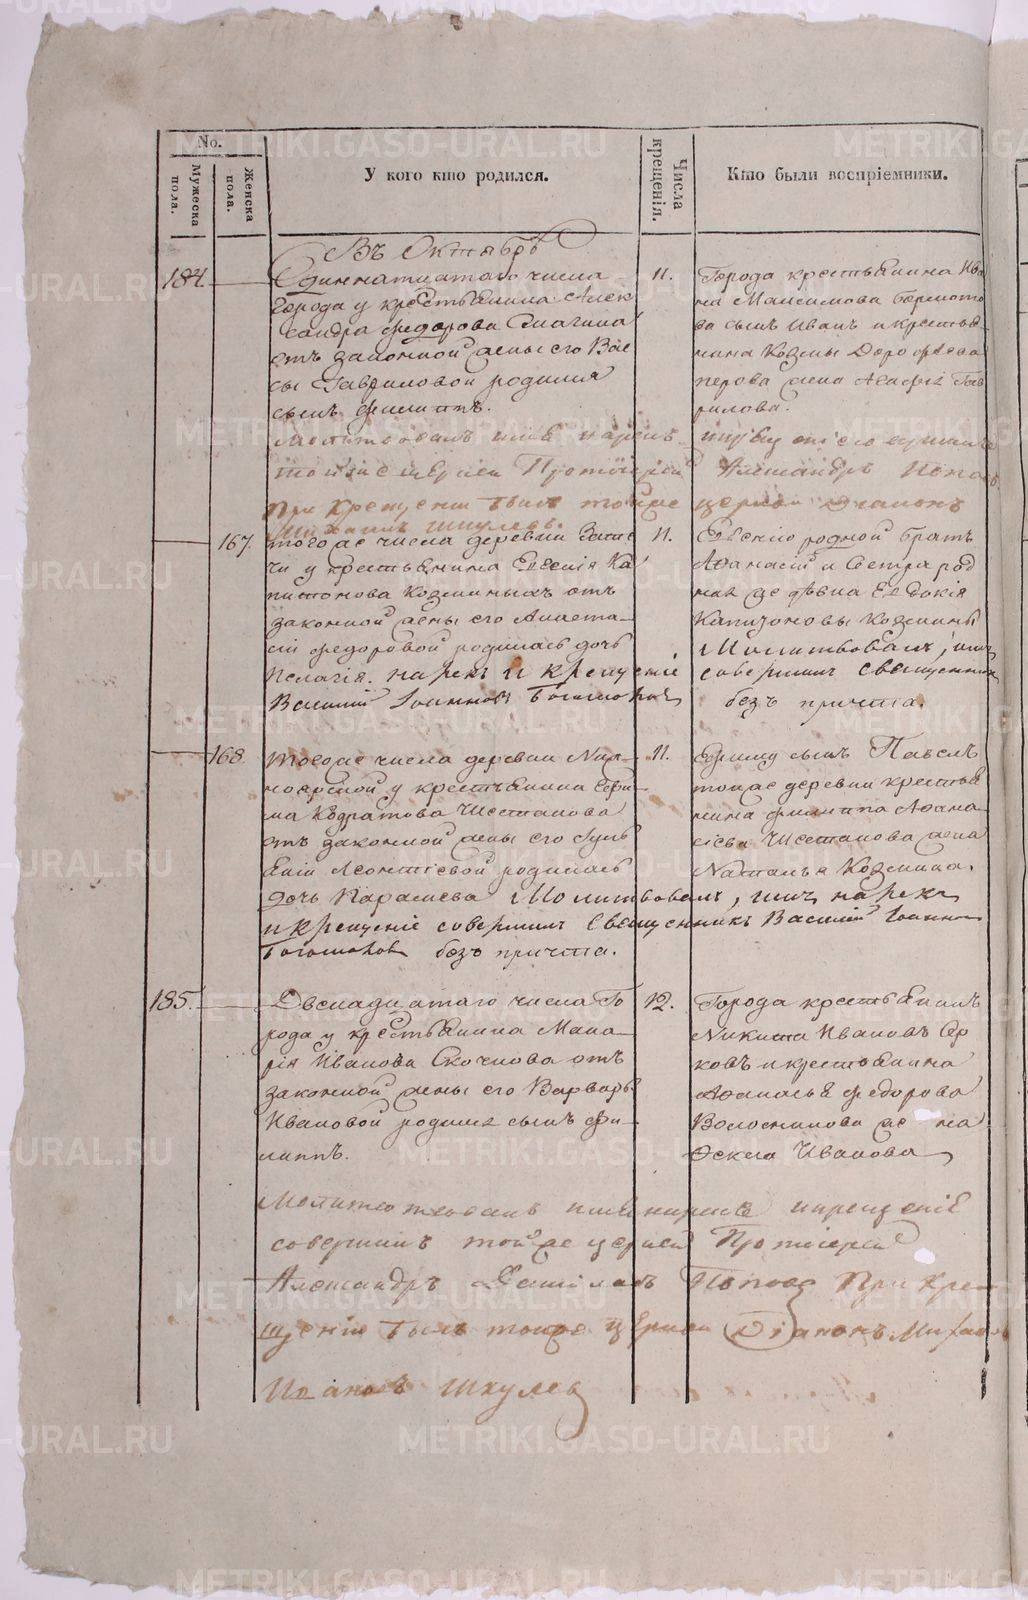 No.
Мужеска пола.
Женска пола.
У кого кто родился.
Числа крещенія.
Кто были воспріемники.
Въ Октябрѣ
184.
Одиннатцатаго числа
города у крестьянина Алек
сандра Федорова
отъ законной жены его Вас
сы Гавриловой родился
сынъ Филиппъ.
11.
Города крестьянина Ива
на Максимова
ва сынъ Иванъ и крестья
нина Козмы Дорофеева
перова жена Агафія Гав
рилова.
Молитвовалъ имя нарекъ
тойже церкви Протоіерей
При Крещеніи былъ тойже
Михаилъ Шкулевъ.
и крещеніе совершилъ
Александръ Поповъ
церкви Діаконъ
167.
того же числа деревни
чи у крестьянина Евсевія Ка
питонова Козминыхъ отъ
законной жены его Анаста
сіи Федоровой родилась дочь
Пелагія. нарекъ и крещеніе
Василій Іоанновъ Богомоловъ
11.
Евсевію родной братъ
Афанасій и Сестра род
ная же дѣвка Евдокія
Капитоновы Козмины
Молитвовалъ, имя
совершилъ священникъ
безъ причта.
168
того же числа деревни
у крестьянина Ефи
ма Кодратова Чистякова
отъ законной жены его
Леонтіевой родилась
дочь Параскева Молитвовалъ, имя нарекъ
и крещеніе совершилъ Священникъ Василій Іоанновъ
Богомоловъ безъ причта.
11.
Ефиму сынъ Павелъ
тояже деревни крестья
нина Филиппа Афана
сіева Чистякова жена
Наталья Козмина.
185.
Двенадцатаго числа Го
рода у крестьянина Мака
рія Иванова Скочкова отъ
законной жены его Варвары
Ивановой родился сынъ Фи
липпъ.
12.
Города крестьянинъ
Никита Ивановъ
ковъ и крестьянина
Афанасья Федорова
Волосникова же на
Фекла Иванова
Молитвовалъ имя нарекъ и крещеніе
совершилъ тойже церкви Протоіерей
Александръ Поповъ При Кре
щеніи былъ тойже церкви Діаконъ Михаилъ
Ивановъ Шкулев
METRIKI.GASO-URAL.RU